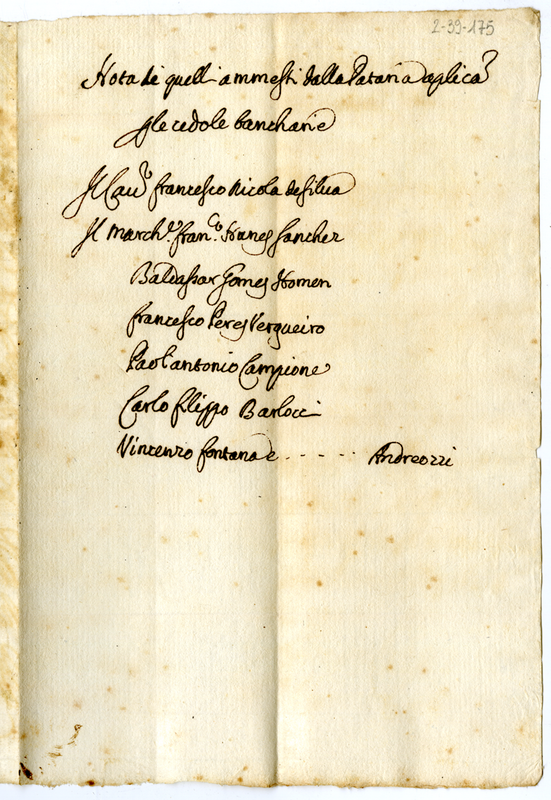 2-39-175
Nota di quelli ammessi dalla Dataria Aplica
p le cedole bancharie
Il Cau.º francesco Nicola de Silua
Il March.e fran.co Nunes Sancher
Baldassar Gomes Homen
francesco Peres Vergueiro
Paol'antonio Campione
Carlo filippo Barlocci
Vincenzo fontana e . - - - - - Andreozzi